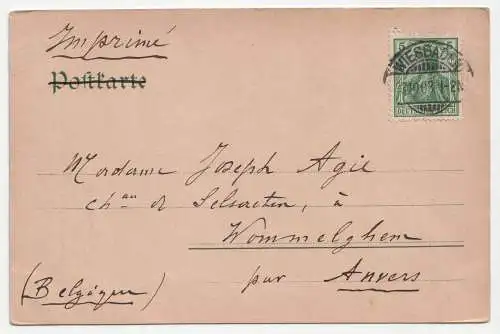 Imprimé
Postkarte
5 5
WIESBADEN
Madame Joseph Agie
Chau de Selsaeten, à
Wommelghem
par Anvers
(Belgique)